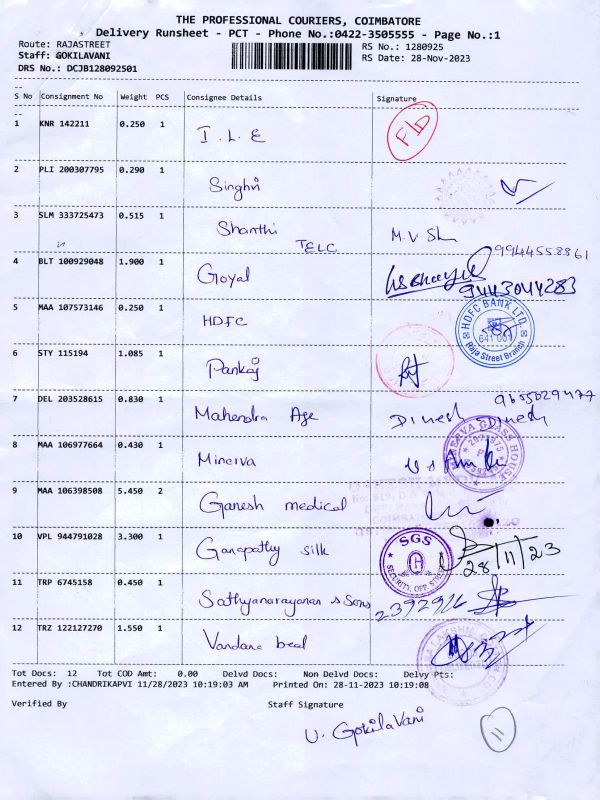 THE PROFESSIONAL COURIERS, COIMBATORE
Delivery Runsheet - PCT - Phone No.:0422-3505555 - Page No.:1
Route: RAJASTREET
RS No.: 1280925
Staff: GOKILAVANI
RS Date: 28-Nov-2023
DRS No.: DCJB128092501
S No Consignment No Weight PCS Consignee Details Signature
1 KNR 142211 0.250 1 I. L. E F/D
2 PLI 200307795 0.290 1 Singhvi
3 SLM 333725473 0.515 1 Shanthi TELC M.V
9944558361
4 BLT 100929048 1.900 1 Goyal
9443044283
5 MAA 107573146 0.250 1 HDFC HDFC BANK LTD. 641 001 Raja Street Branch
6 STY 115194 1.085 1 Pankaj
7 DEL 203528615 0.830 1 Mahendra Age Dinesh Dinesh
8 MAA 106977664 0.430 1 Minerva GLASS HOUSE
9 MAA 106398508 5.450 2 Ganesh medical
10 VPL 944791028 3.300 1 Ganapathy silk SGS SECURITY, OPP. STREET 28/11/23
11 TRP 6745158 0.450 1 Sathyanarayanan & Sons 2392926
12 TRZ 122127270 1.550 1 Vandana bead
Tot Docs: 12 Tot COD Amt: 0.00 Delvd Docs: Non Delvd Docs: Delvy Pts:
Entered By :CHANDRIKAPVI 11/28/2023 10:19:03 AM Printed On: 28-11-2023 10:19:08
Verified By Staff Signature
U. GokilaVani
11